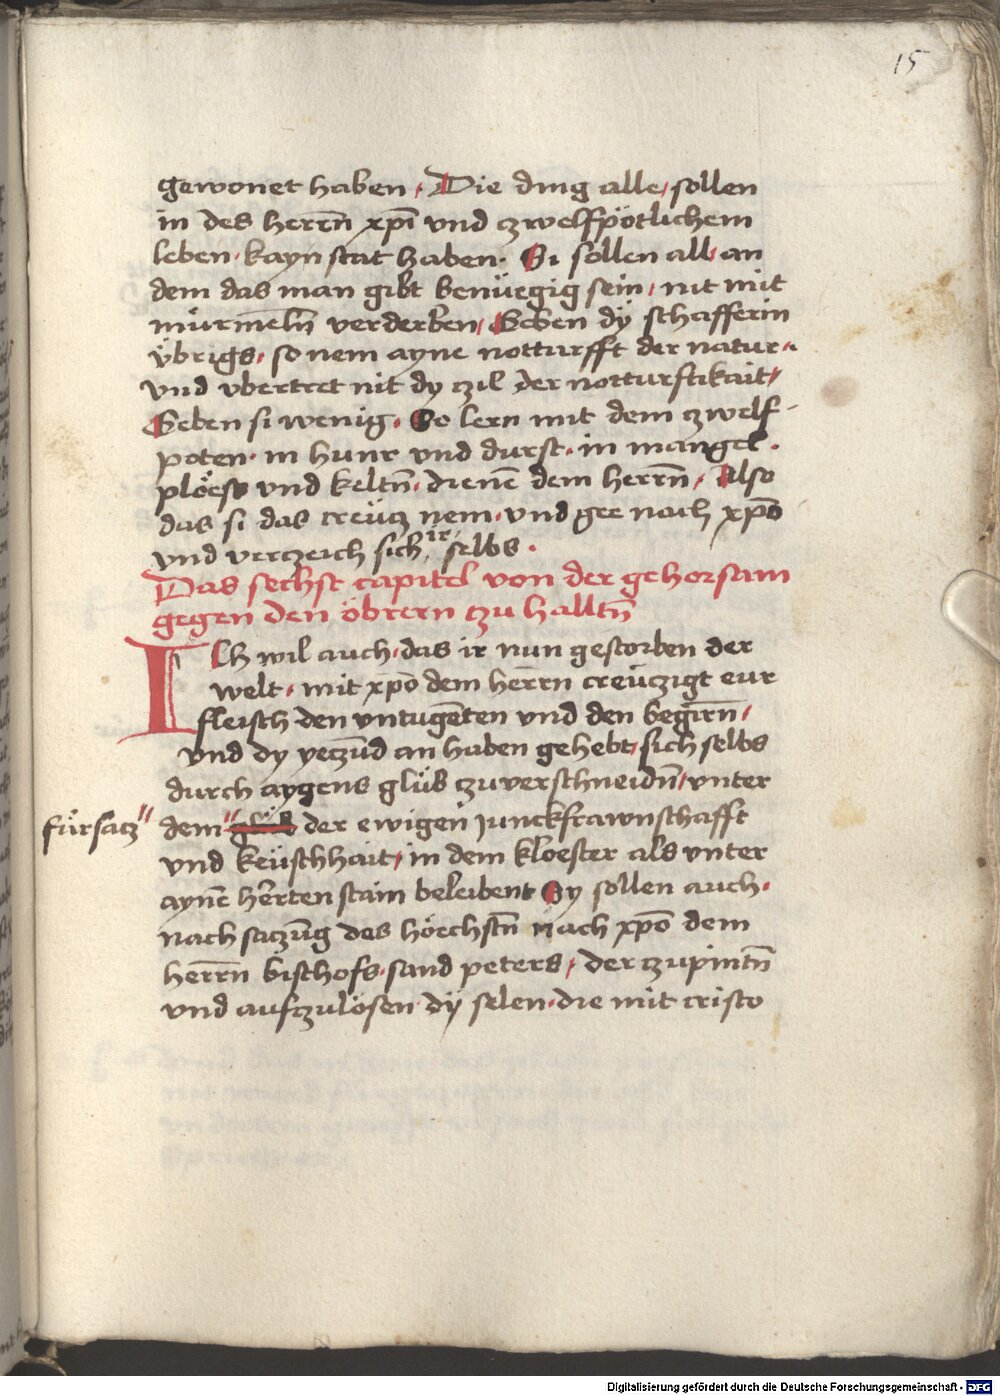 15
gewonet haben. Die ding alle, sollen
in des herrn̄ xp̄i vnd czwelfpötlichem
leben. kayn stat haben. Si sollen all, an
dem das man gibt benüegig sein, nit mit
mürmeln̄ verderben, Geben dÿ schafferin
übrigs, so nem ayne notturfft der natur.
vnd vbertret nit dy czil der notturftikait,
Geben si wenig. So lern mit dem czwelf-
poten. in hungr vnd durst. in mangel.
plöess vnd keltn̄. dienē dem herrn̄, Also
das si das creücz nem. vnd gee nach xp̄o
vnd verczeich sich ir selbs.
Das sechst capitel von der gehorsam
gegen den öbrern czu halltn̄
Ich wil auch. das ir nun gestorben der
welt. mit xp̄o dem herrn creüczigt eur
fleisch den vntugēten vnd den begirn̄,
vnd dy yeczūd an haben gehebt, sich selbs
durch aygens glüb czuverschneidn̄, vnter
fürsacz" dem" glüb der ewigen junckfrawnschafft
vnd keüschhait, in dem kloester als vnter
aynē herten stain beleibent Sy sollen auch.
nach saczūg des höechstn̄ nach xp̄o dem
herrn̄ bischofs. sand peters, der czupintn̄
vnd aufczulösen dÿ selen. die mit cristo
Digitalisierung gefördert durch die Deutsche Forschungsgemeinschaft - DFG